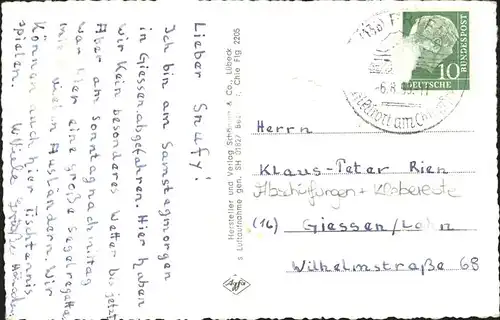 Lieber Snufy!
Ich bin am Samstagmorgen
in Giessen abgefahren. Hier haben
wir kein besonderes Wetter bis jetzt
Aber am Sonntagnachmittag
war hier eine große Segelregatta
mit vielen Ausländern. Wir
können auch hier Tischtennis
spielen. Viele Grüße
Hersteller und Verlag Schöning & Co., Lübeck
s Luftaufnahme gen. SH 01627
DEUTSCHE BUNDESPOST
10
am Chiemsee
Herrn
Klaus-Peter Rien
(16) Giessen/Lahn
Wilhelmstraße 68